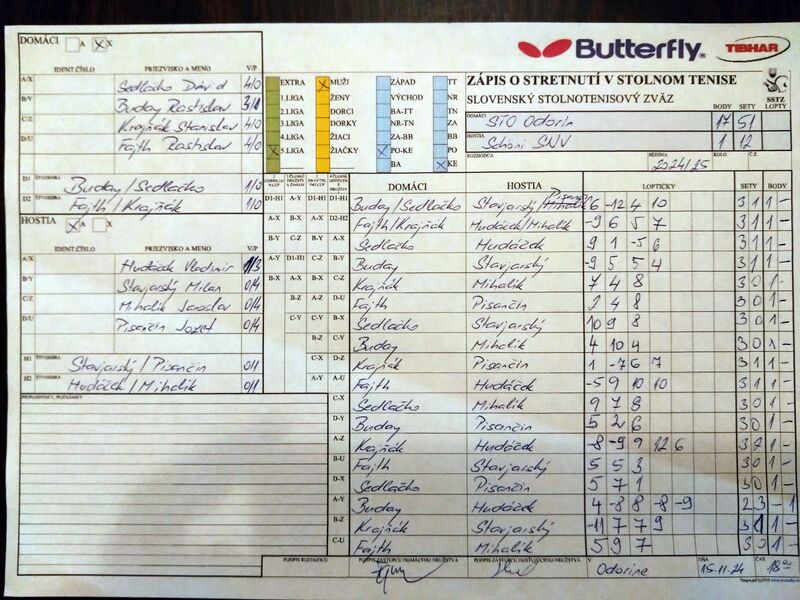 DOMÁCI A X X
IDENT.ČÍSLO PRIEZVISKO A MENO V/P
A/X Sedlačko Dávid 4/0
B/Y Buday Rastislav 3/1
C/Z Krajňák Stanislav 4/0
D/U Fajth Rastislav 4/0
D1 ŠTVORHRA Buday/Sedlačko 1/0
D2 ŠTVORHRA Fajth/Krajňák 1/0
HOSTIA X A X
IDENT.ČÍSLO PRIEZVISKO A MENO V/P
A/X Hudáček Vladimír 1/3
B/Y Stavjarský Milan 0/4
C/Z Mihalik Jaroslav 0/4
D/U Pisančin Jozef 0/4
H1 ŠTVORHRA Stavjarský/Pisančin 0/1
H2 ŠTVORHRA Hudáček/Mihalik 0/1
PRIPOMIENKY, POZNÁMKY
EXTRA X MUŽI ZÁPAD TT
1.LIGA ŽENY VÝCHOD NR
2.LIGA DORCI BA-TT TN
3.LIGA DORKY NR-TN ZA
4.LIGA ŽIACI ZA-BB BB
X 5.LIGA ŽIAČKY X PO-KE PO
BA X KE
Butterfly TIBHAR
ZÁPIS O STRETNUTÍ V STOLNOM TENISE
SLOVENSKÝ STOLNOTENISOVÝ ZVÄZ
SSTZ
BODY SETY LOPTY
DOMÁCI STO Odorín 17 51
HOSTIA Schöni SNV 1 12
ROZHODCA SEZÓNA 2024/25 KOLO Č.Z.
DOMÁCI HOSTIA LOPTIČKY SETY BODY
D1-H1 A-X D1-H1 D1-H1 Buday/Sedlačko Stavjarský/Pisančin 6 -12 4 10 3 1 1 -
A-X B-Y A-X D2-H2 Fajth/Krajňák Hudáček/Mihalik -9 6 5 7 3 1 1 -
B-Y C-Z B-Y A-X Sedlačko Hudáček 9 1 -5 6 3 1 1 -
A-Y D1-H1 C-Z B-Y Buday Stavjarský -9 5 5 4 3 1 1 -
B-X A-X B-X C-Z Krajňák Mihalik 7 4 8 3 0 1 -
B-Z A-Z D-U Fajth Pisančin 2 4 8 3 0 1 -
C-Y C-Y B-X Sedlačko Stavjarský 10 9 8 3 0 1 -
B-Z C-Y Buday Mihalik 4 10 4 3 0 1 -
C-X D-Z Krajňák Pisančin 1 -7 6 7 3 1 1 -
A-Y A-U Fajth Hudáček -5 9 10 10 3 1 1 -
C-X Sedlačko Mihalik 9 7 8 3 0 1 -
D-Y Buday Pisančin 5 2 6 3 0 1 -
A-Z Krajňák Hudáček -8 -9 9 12 6 3 2 1 -
B-U Fajth Stavjarský 5 5 3 3 0 1 -
D-X Sedlačko Pisančin 5 7 1 3 0 1 -
A-Y Buday Hudáček 4 -8 8 -8 -9 2 3 - 1
B-Z Krajňák Stavjarský -11 7 7 9 3 1 1 -
C-U Fajth Mihalik 5 9 7 3 0 1 -
PODPIS ROZHODCU PODPIS ZÁSTUPCU DOMÁCEHO DRUŽSTVA PODPIS ZÁSTUPCU HOSŤUJÚCEHO DRUŽSTVA V Odoríne DŇA 15.11.24 ČAS 18 00